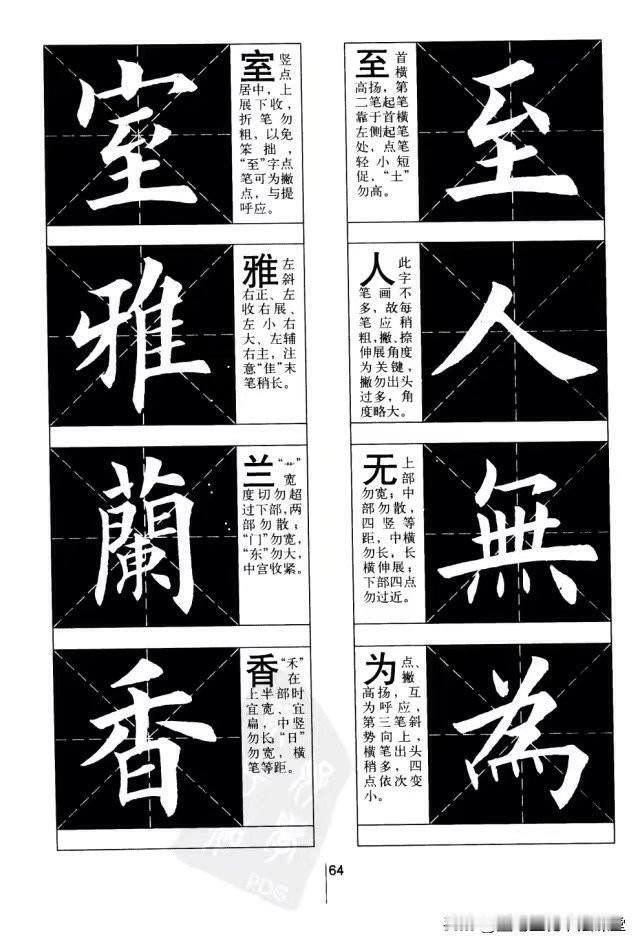 室
室竖
点
居中,上
展下收,
折笔勿
粗,以免
笨拙,
“至”字点
笔可为撇
点,与提
呼应。
雅
雅左
斜
右正、左
收右展、
左小右
大、左辅
右主,注
意“隹”末
笔稍长。
蘭
兰“艹”
宽
度切勿超
过下部,两
部勿散;
“门”勿宽,
“东”勿大,
中宫收紧。
香
香“禾”
在
上半部时
宜宽、宜
扁,中竖
勿长“日”
勿宽,横
笔等距。
至
至首
横
高扬,第
二笔起笔
靠于首横
左侧起笔
处,点笔
轻小短
促,“土”
勿高。
人
人此
字
笔画不
多,故每
笔应稍
粗,撇、捺
伸展角度
为关键,
撇勿出头
过多,角
度略大。
無
无上
部
勿宽;中
部勿散,
四竖等
距,中横
勿长,长
横伸展;
下部四点
勿过近。
為
为点、
撇
高扬,互
为呼应,
第三笔斜
势向上,
横笔出头
稍多,四
点依次变
小。
PDG
64